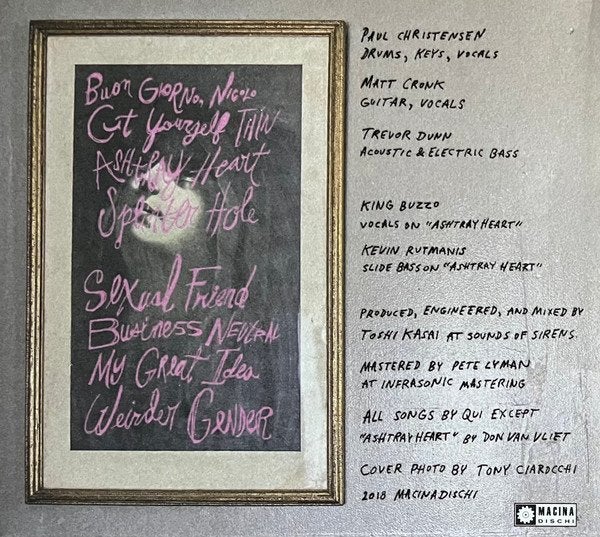 Buon Giorno, Nicolo
Cut Yourself Thin
Ashtray Heart
Splinter Hole
Sexual Friend
Business Neutral
My Great Idea
Weirder Gender
PAUL CHRISTENSEN
DRUMS, KEYS, VOCALS
MATT CRONK
GUITAR, VOCALS
TREVOR DUNN
ACOUSTIC & ELECTRIC BASS
KING BUZZO
VOCALS ON "ASHTRAY HEART"
KEVIN RUTMANIS
SLIDE BASS ON "ASHTRAY HEART"
PRODUCED, ENGINEERED, AND MIXED BY
TOSHI KASAI AT SOUNDS OF SIRENS
MASTERED BY PETE LYMAN
AT INFRASONIC MASTERING
ALL SONGS BY QUI EXCEPT
"ASHTRAY HEART" BY DON VAN VLIET
COVER PHOTO BY TONY CIAROCCHI
2018 MACINADISCHI
MACINA
DISCHI